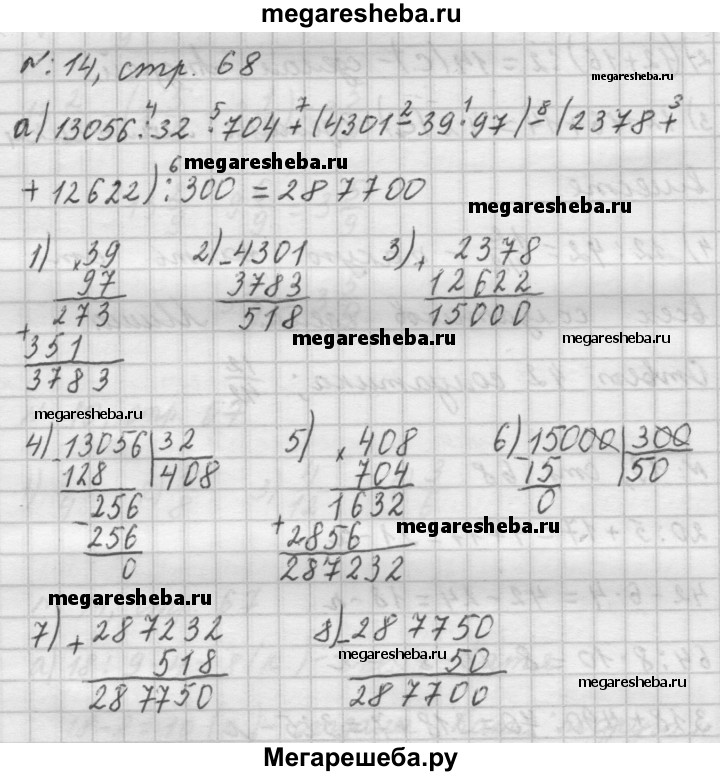 megaresheba.ru
№: 14, стр. 68
megaresheba.ru
4 5 7 2 1 8 3
а) 13056 : 32 · 704 + (4301 - 39 · 97) - (2378 +
megaresheba.ru
6
+ 12622) : 300 = 287700
megaresheba.ru
1) × 39 2) - 4301 3) + 2378
97 3783 12622
273 518 15000
+
351 megaresheba.ru megaresheba.ru
3783
megaresheba.ru
4) - 13056 | 32 5) × 408 6) - 15000 | 300
128 408 704 15 50
256 1632 0
- 256 + 2856 megaresheba.ru
0 287232
megaresheba.ru
7) + 287232 8) - 287750
518 megaresheba.ru 50
287750 287700 megaresheba.ru
Мегарешеба.ру